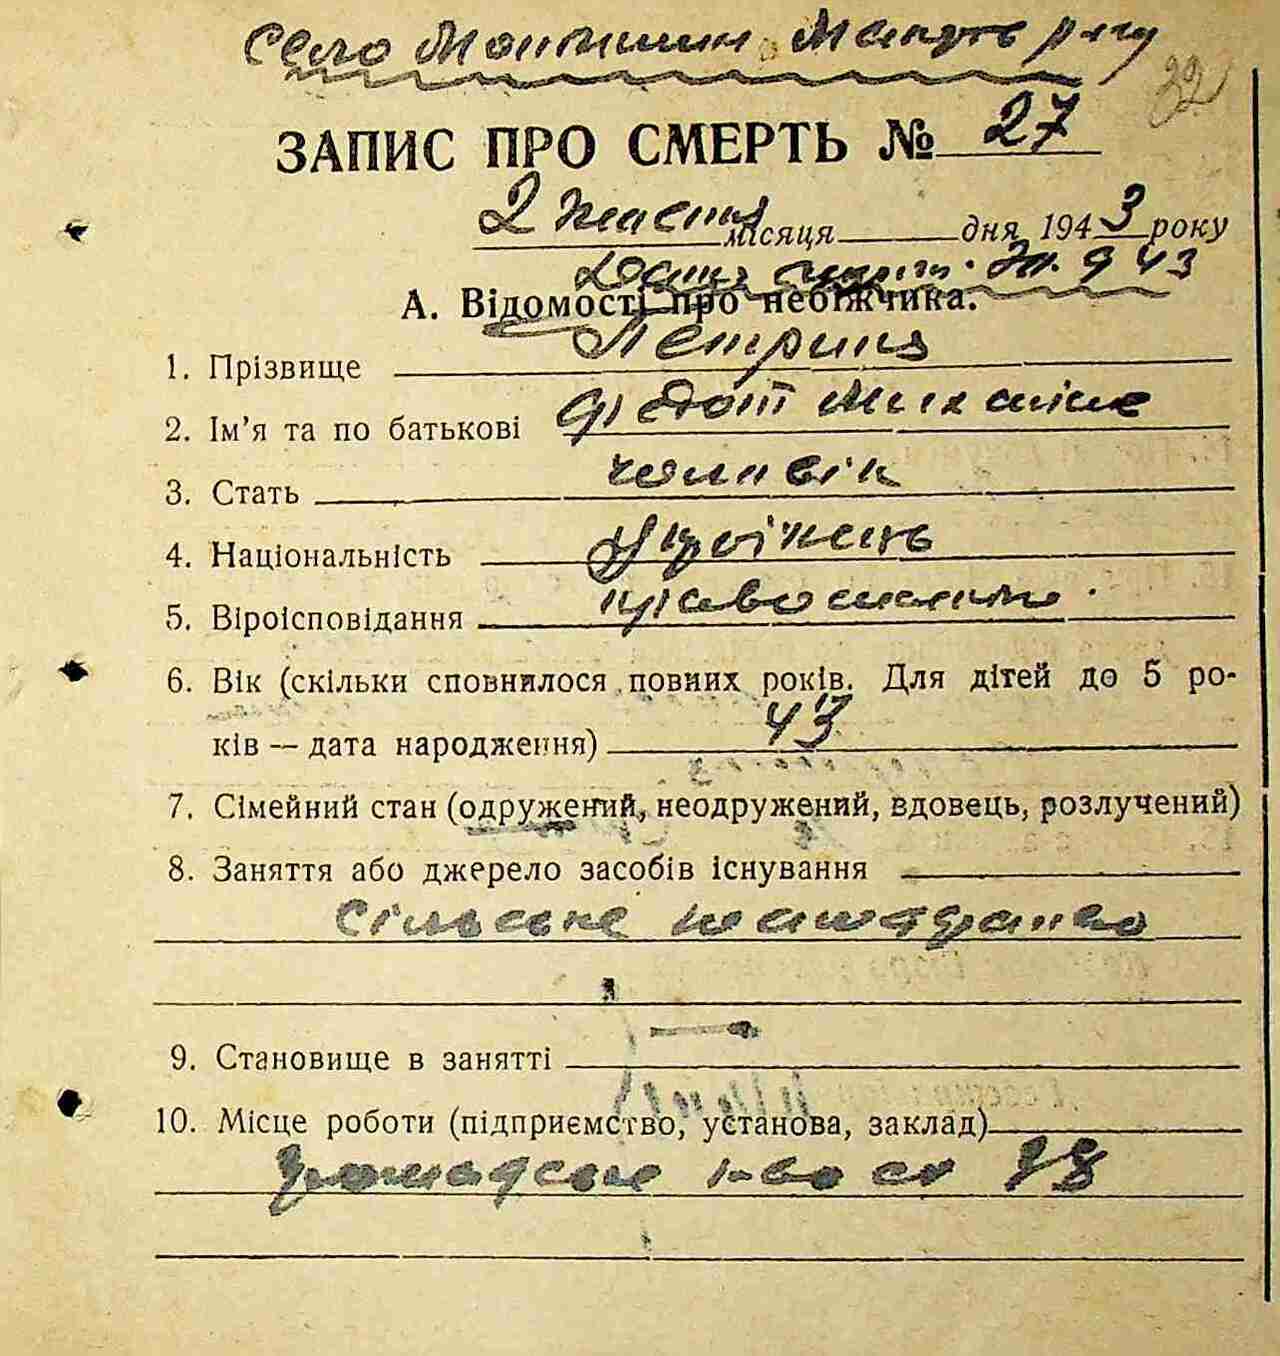 Село
22
ЗАПИС ПРО СМЕРТЬ № 27
2 місяця дня 1943 року
9 43
А. Відомості про небіжчика.
1. Прізвище Петриця
2. Ім'я та по батькові Федот
3. Стать чоловік
4. Національність Українець
5. Віроісповідання православне
6. Вік (скільки сповнилося повних років. Для дітей до 5 ро-
ків — дата народження) 43
7. Сімейний стан (одружений, неодружений, вдовець, розлучений)
8. Заняття або джерело засобів існування
Сільське
9. Становище в занятті —
10. Місце роботи (підприємство, установа, заклад)
громадське